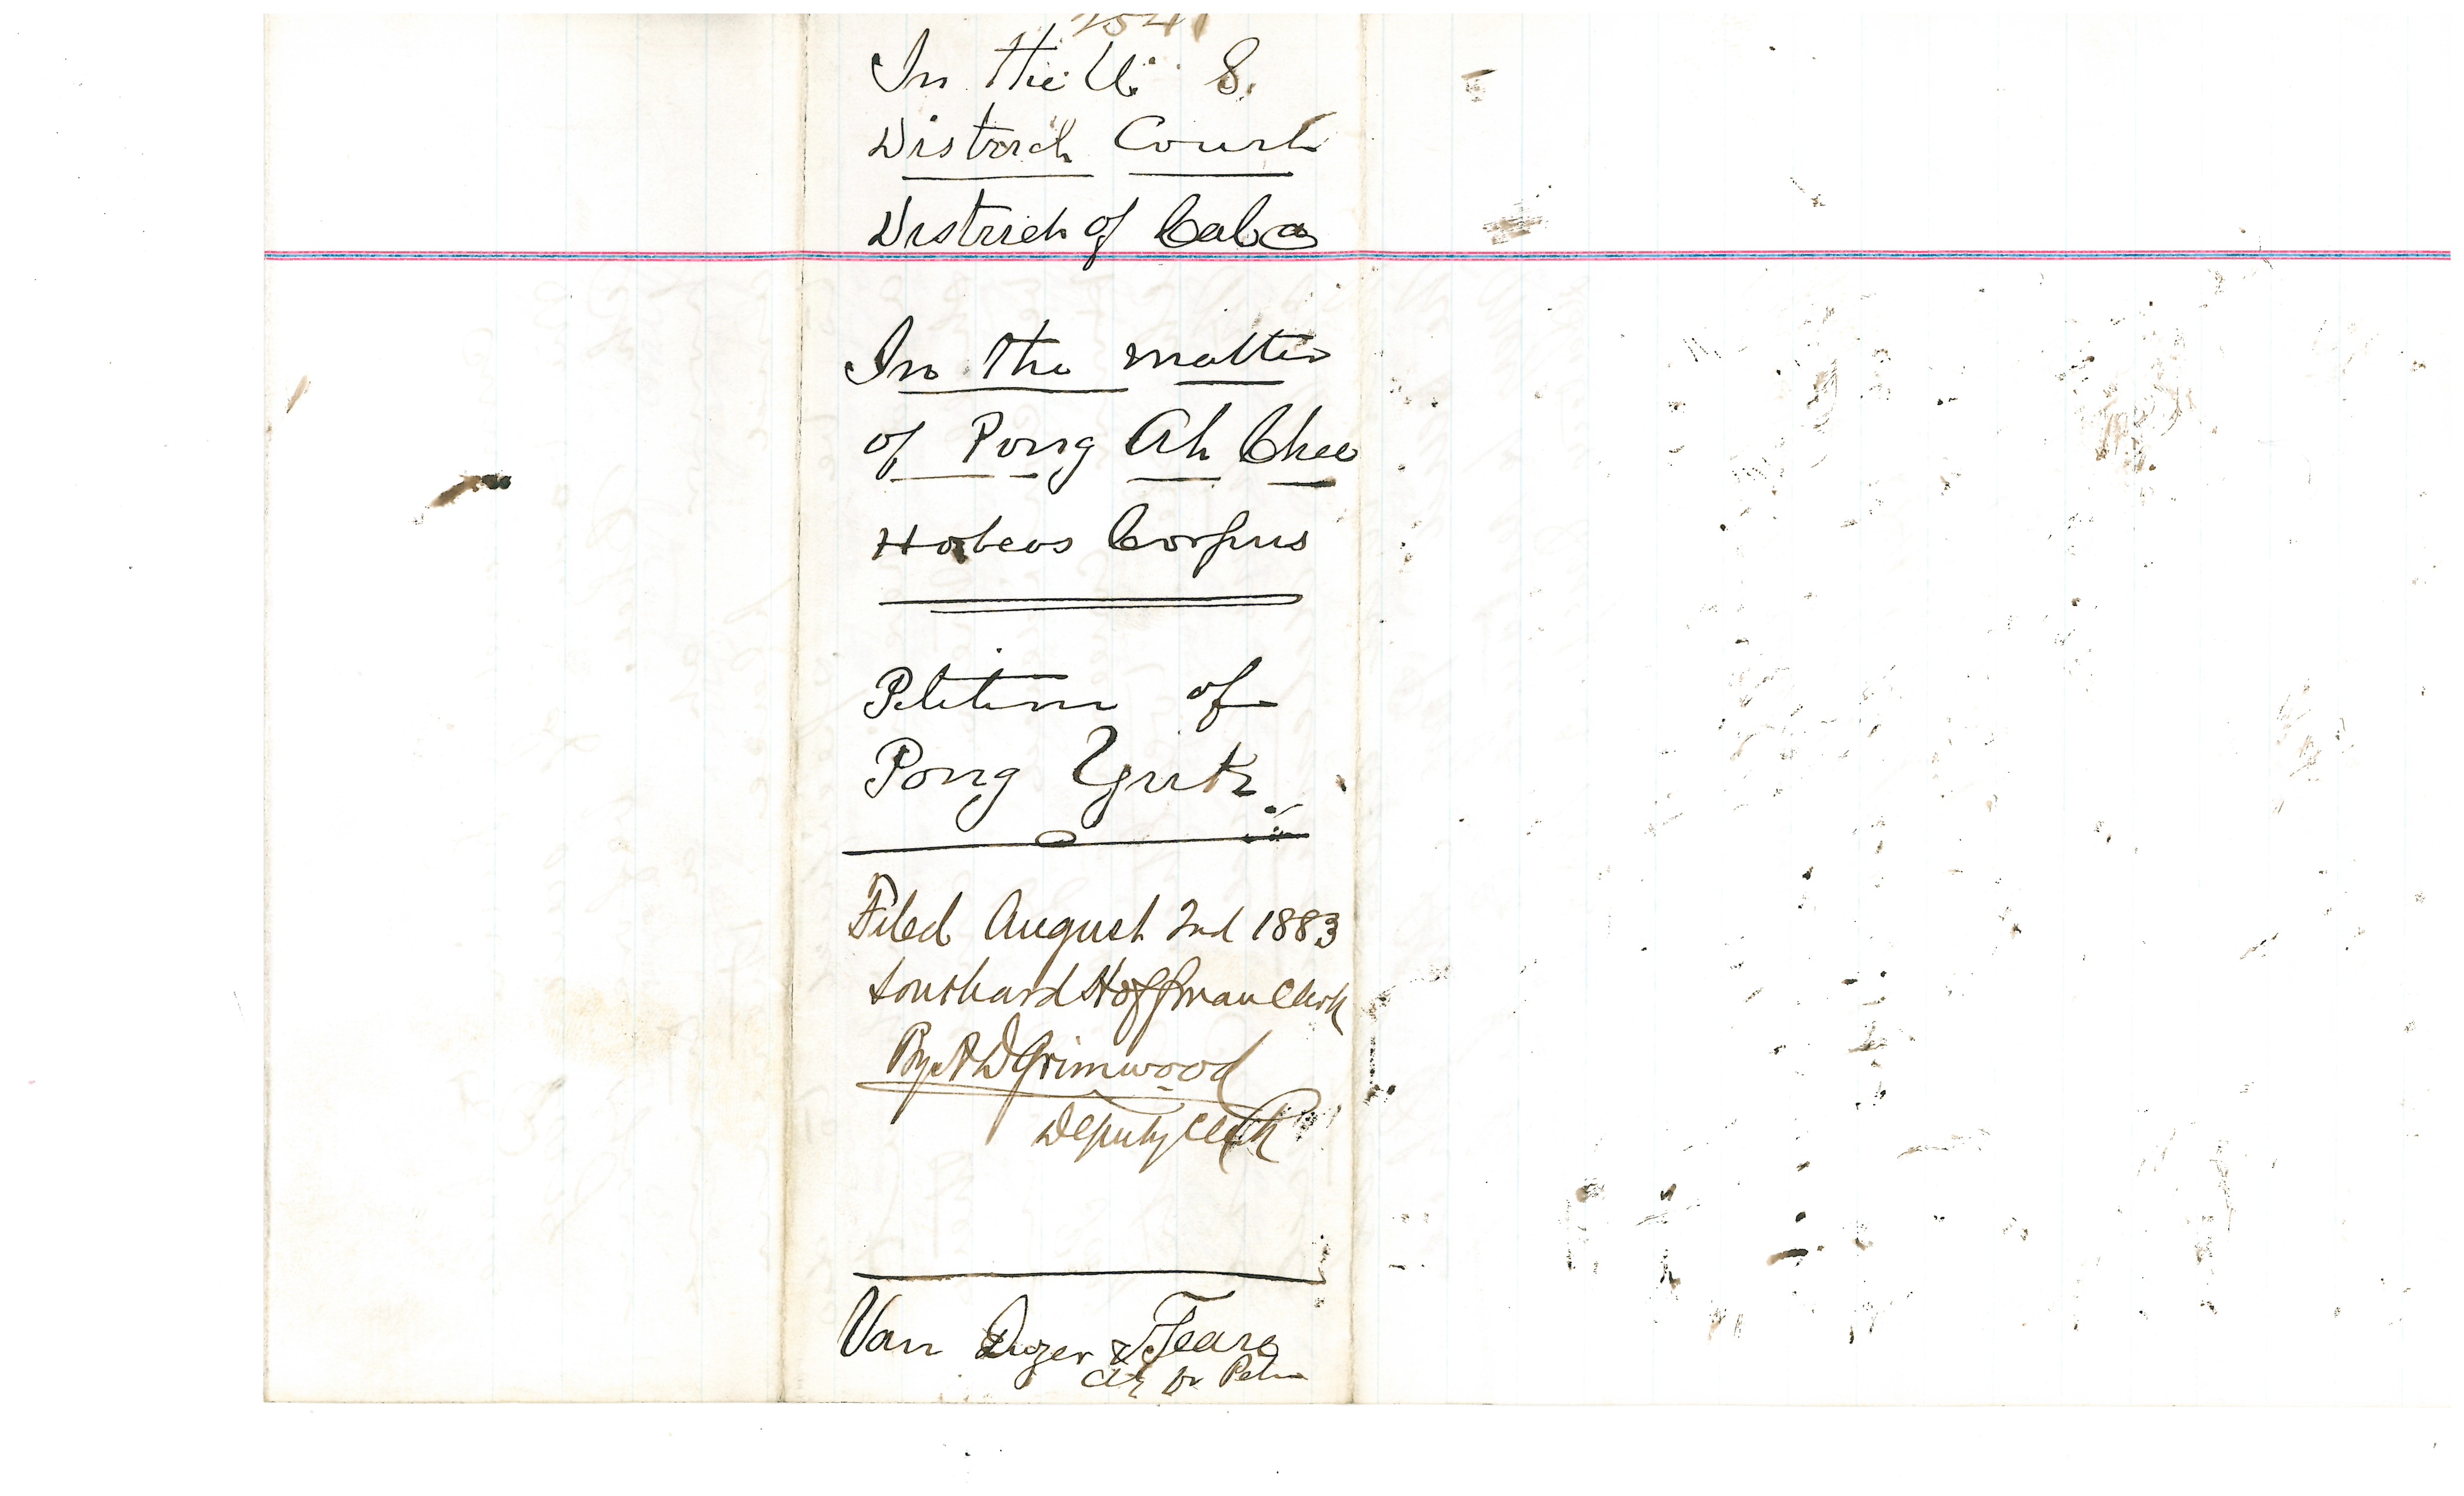 In the U. S.
District Court
District of Cala
In the matter
of Pong Ah Chee
Habeas Corpus
Petition of
Pong
Filed August 2nd 1883
Southard Hoffman Clerk
By A D Grimwood
Deputy Clerk
Van Duzer & Teare
Atty for Petr